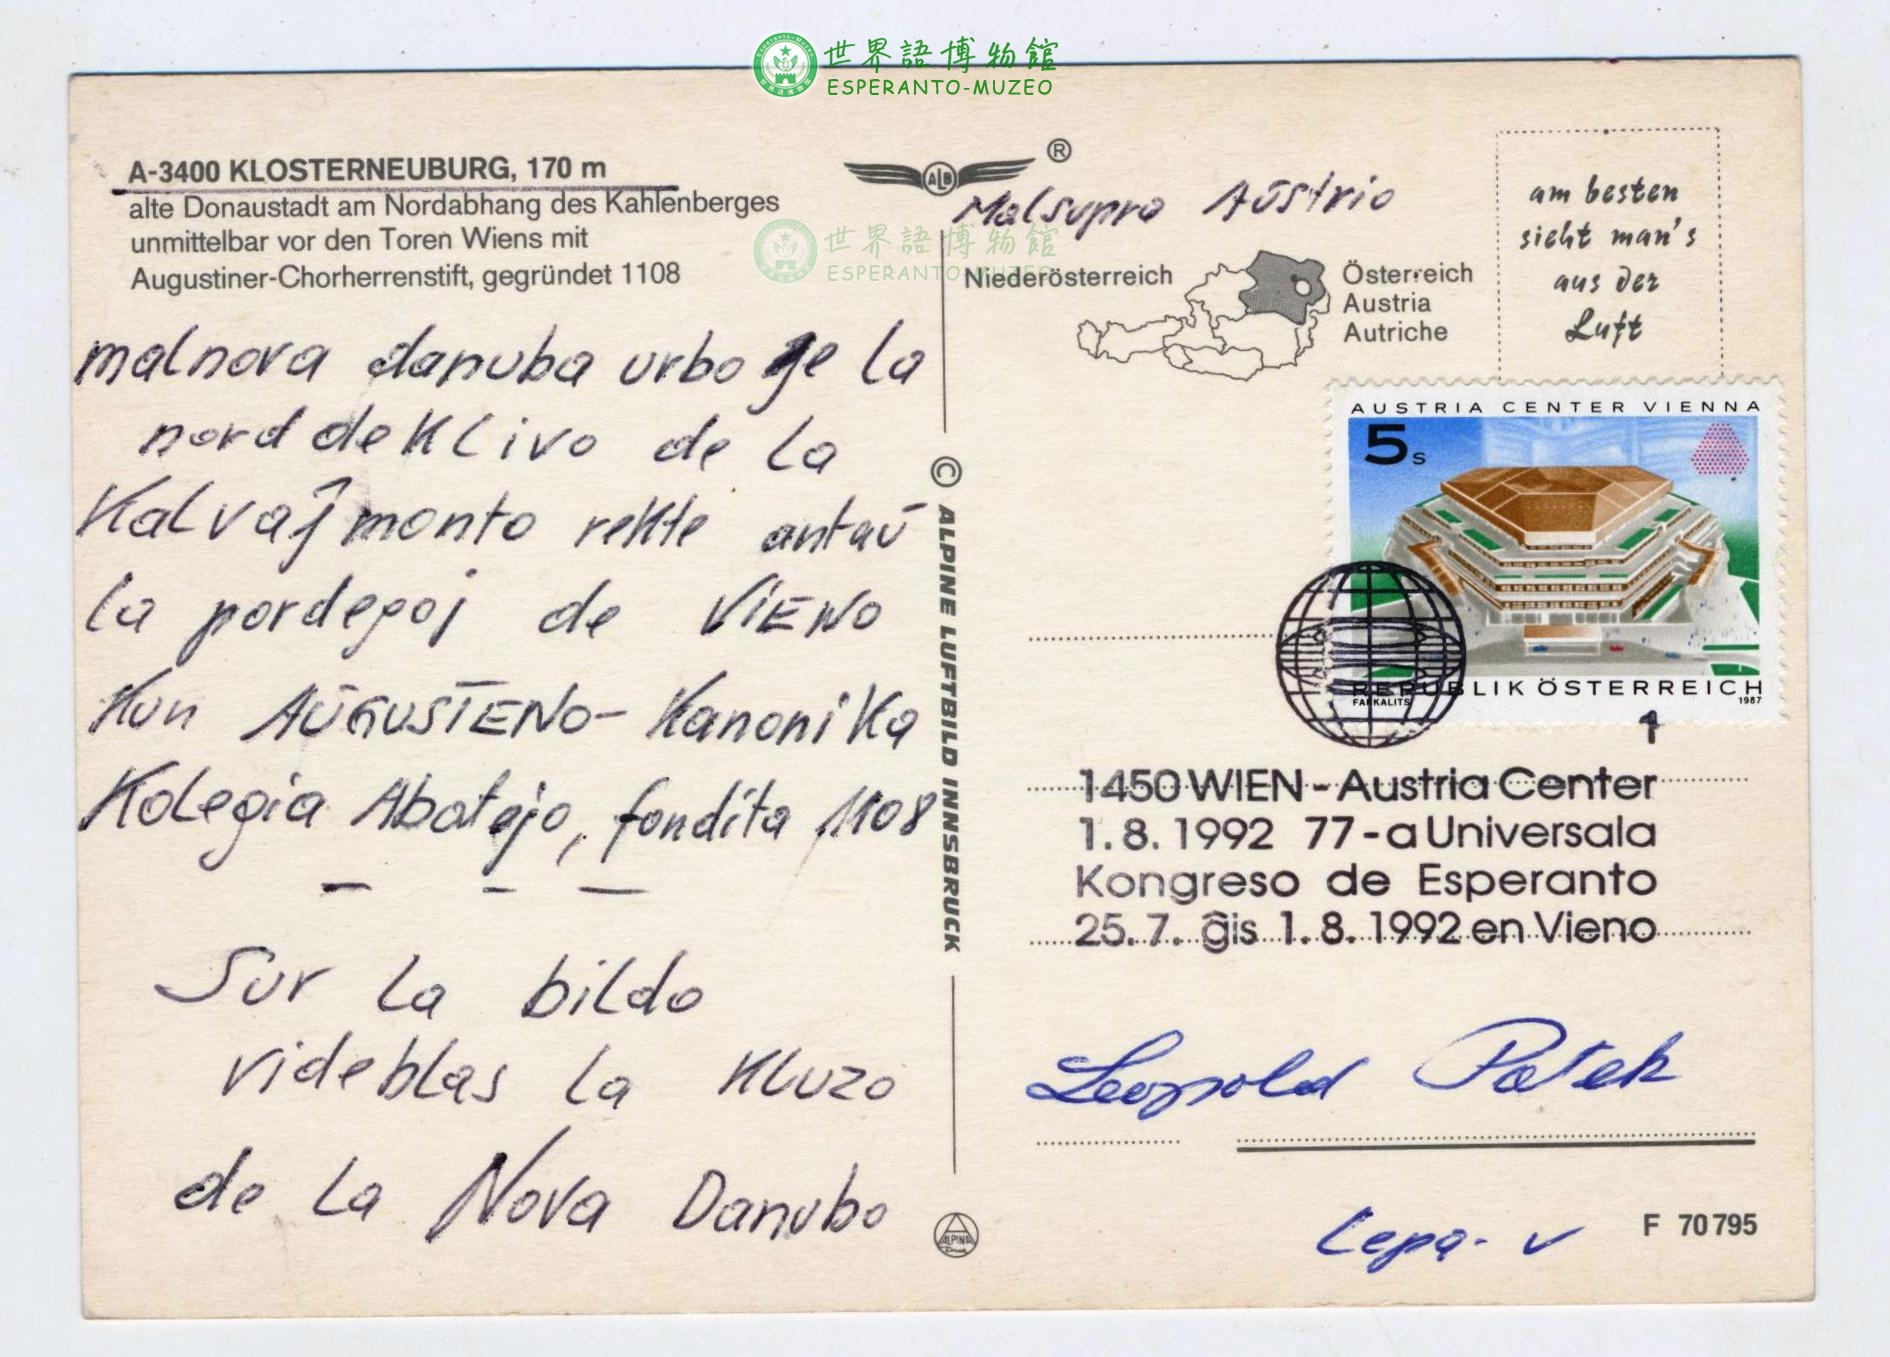 世界語博物館
ESPERANTO-MUZEO
A-3400 KLOSTERNEUBURG, 170 m
alte Donaustadt am Nordabhang des Kahlenberges
unmittelbar vor den Toren Wiens mit
Augustiner-Chorherrenstift, gegründet 1108
世界語博物館
ESPERANTO-MUZEO
malnova danuba urbo ĝe la
nord deklivo de la
Kalvaĵmonto rekte antaŭ
la pordegoj de VIENO
kun AŬGUSTENO-Kanonika
Kolegia Abatejo, fondita 1108
Sur la bildo
videblas la kluzo
de la Nova Danubo
ALB ®
Malsupra Aŭstrio
Niederösterreich
Österreich
Austria
Autriche
am besten
sieht man's
aus der
Luft
© ALPINE LUFTBILD INNSBRUCK
AUSTRIA CENTER VIENNA
5 s
REPUBLIK ÖSTERREICH
FALKALITS 1987
1
1450 WIEN - Austria Center
1.8.1992 77-a Universala
Kongreso de Esperanto
25.7. ĝis 1.8.1992 en Vieno
Leopold Patek
Lepa-v
F 70795
ALPINA
Druck